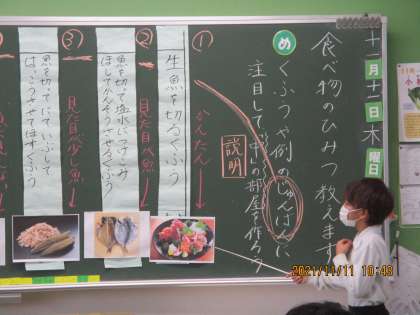 十一月十一日木曜日
食べ物のひみつ教えます
め
くふうや例のじゅんばんに
注目して「中」の部屋を作ろう
説明
①
かんたん
生魚を切るくふう
②
見た目へ魚
魚を切って塩水につけこみ
ほしてかんそうさせるくふう
③
見た目へ少し魚
魚を切って、にて、いぶして
はっこうさせてほすくふう
2021/11/11 10:43